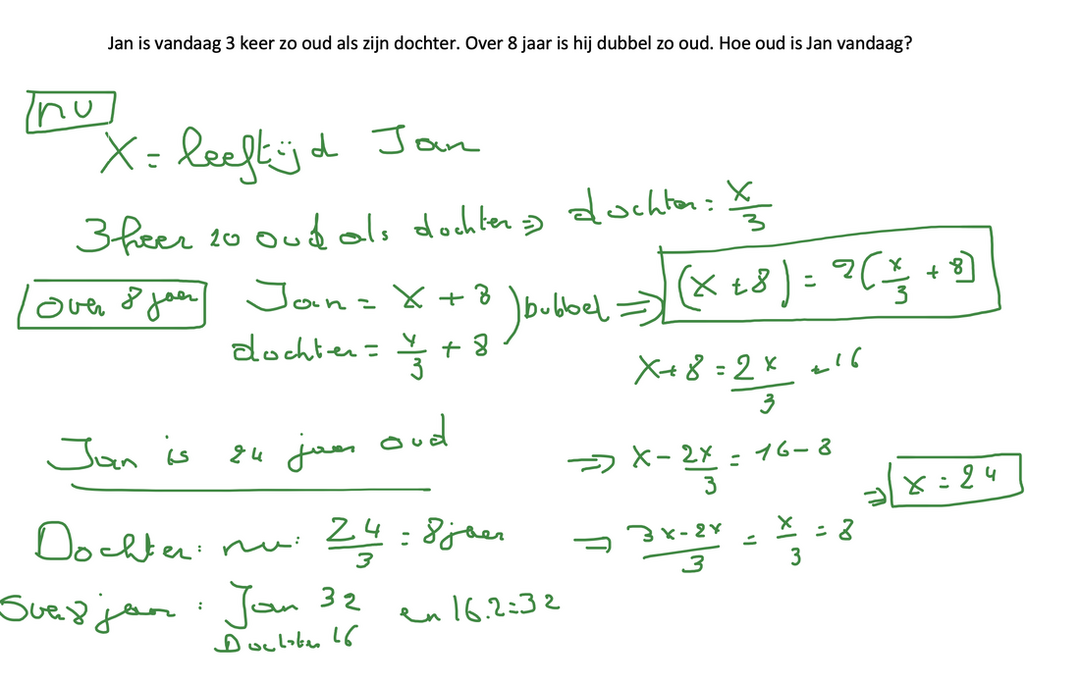 Jan is vandaag 3 keer zo oud als zijn dochter. Over 8 jaar is hij dubbel zo oud. Hoe oud is Jan vandaag?
nu
X = leeftijd Jan
3 keer zo oud als dochter ⇒ dochter = x/3
over 8 jaar Jan = x + 8
dochter = x/3 + 8
) dubbel ⇒ (x + 8) = 2(x/3 + 8)
x + 8 = 2x/3 + 16
⇒ x - 2x/3 = 16 - 8
⇒ 3x - 2x/3 = x/3 = 8
⇒ x = 24
Jan is 24 jaar oud
Dochter: nu: 24/3 = 8 jaar
Over 8 jaar : Jan 32 en 16.2=32
Dochter 16